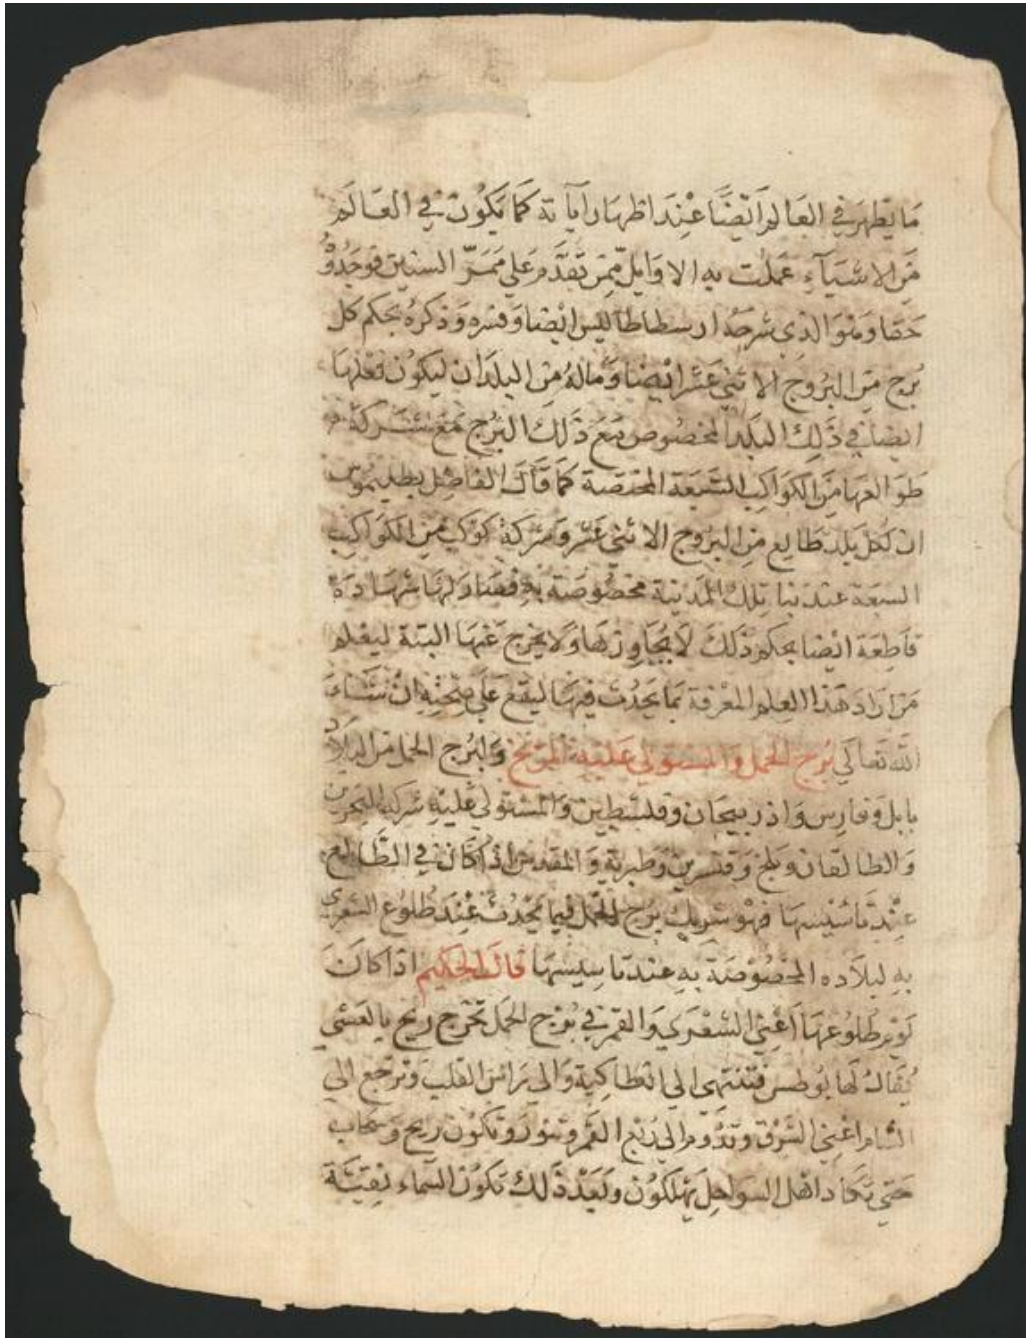 ما يظهر في العالم ايضا عند اظهار اياته كما يكون في العالم
من الاشيآء عملت به الاوايل ممن تقدم علي ممر السنين فوجدوه
حقا وهو الذي شرحه ارسطاطاليس ايضا وفسره وذكره بحكم كل
برج من البروج الاثني عشر ايضا وماله من البلدان ليكون فعلها
ايضا في ذلك البلد المخصوص مع ذلك البرج مع شركة
طوالعها من الكواكب السبعة المختصة كما قال الفاضل بطليموس
ان لكل بلد طالع من البروج الاثني عشر وشركة كوكب من الكواكب
السبعة عند بنا تلك المدينة مخصوصة به شهادة
قاطعة ايضا بحكم ذلك لا يجاوزها ولا يخرج عنها البتة ليعلم
من اراد هذا العلم المعرفة بما يحدث فيها ليقع علي صحته ان شاء
الله تعالي برج الحمل والمستولي عليه المريخ ولبرج الحمل من البلاد
بابل وفارس واذربيجان وفلسطين والمستولي عليه شركة البحرين
والطالقان وبلخ وقنسرين وطبرية والمقدس اذا كان في الطالع
عند تاسيسها فهو شريك برج الحمل فيما يحدث عند طلوع الشعري
به لبلاده المخصوصة به عند تاسيسها قال الحكيم اذا كان
يوم طلوعها اعني الشعري والقمر في برج الحمل تخرج ريح بالعشي
يقال لها بوطس فتنتهي الي انطاكية والي راس القلب وترجع الي
الشام اعني الشرق وتدوم الي ربع القمر وتكون ريح وسحاب
حتي تكاد اهل السواحل يهلكون وبعد ذلك تكون السماء نقية